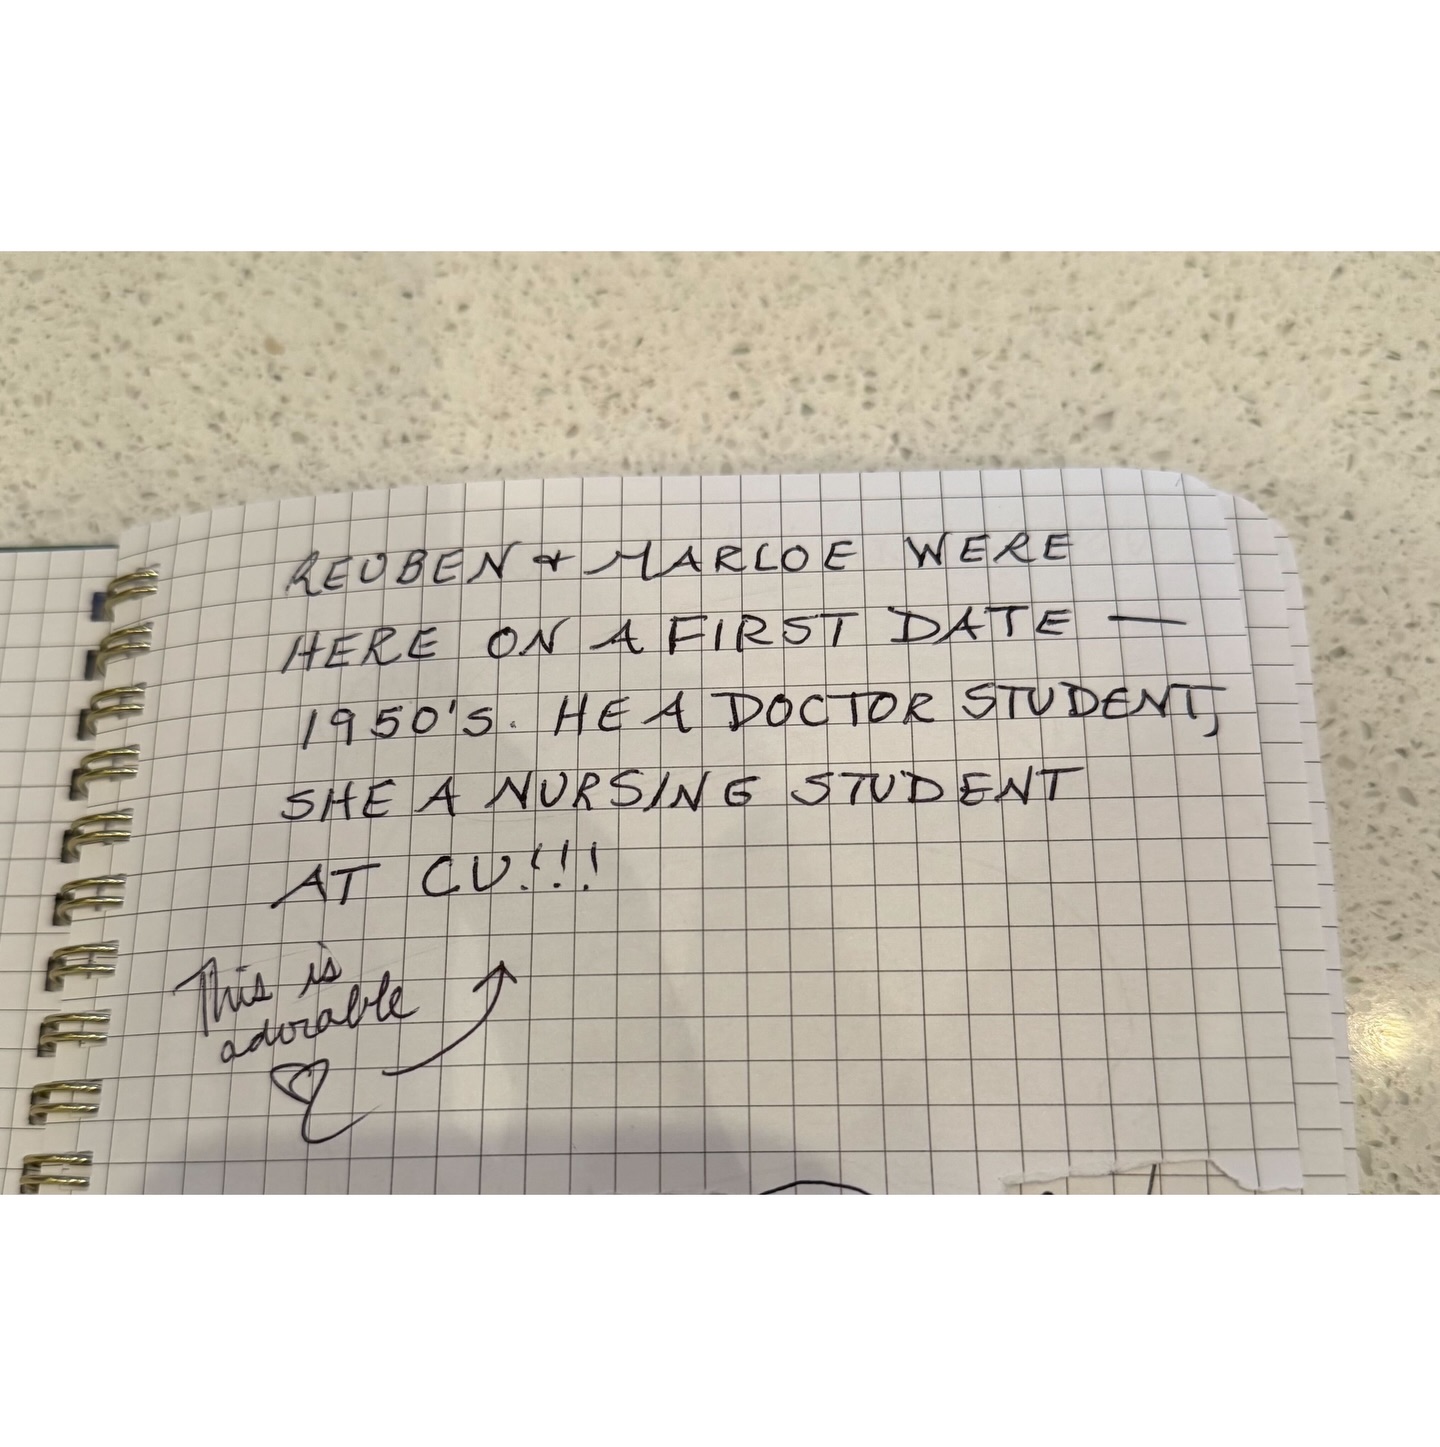 REUBEN & MARLOE WERE
HERE ON A FIRST DATE —
1950'S. HE A DOCTOR STUDENT,
SHE A NURSING STUDENT
AT CU!!!
This is
adorable